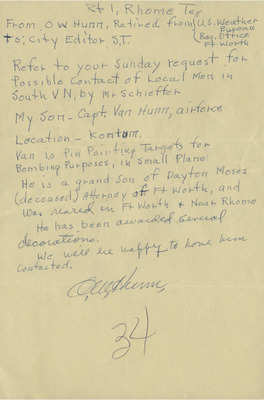 Rt 1, Rhome Tex
From O W Hunn, Retired from U.S. Weather
Bureau
To; City Editor, S.T. Reg. Office
Ft Worth
Refer to your Sunday request for
Possible Contact of Local Men in
South VN, by Mr Schieffer
My Son - Capt. Van Hunn, airforce
Location - Kontum.
Van is Pin Pointing Targets for
Bombing Purposes, in Small Plane
He is a grand Son of Dayton Moses
(deceased) Attorney of Ft Worth, and
was reared in Ft Worth & Near Rhome
He has been awarded several
decorations.
We will be happy to have him
contacted.
O W Hunn
34